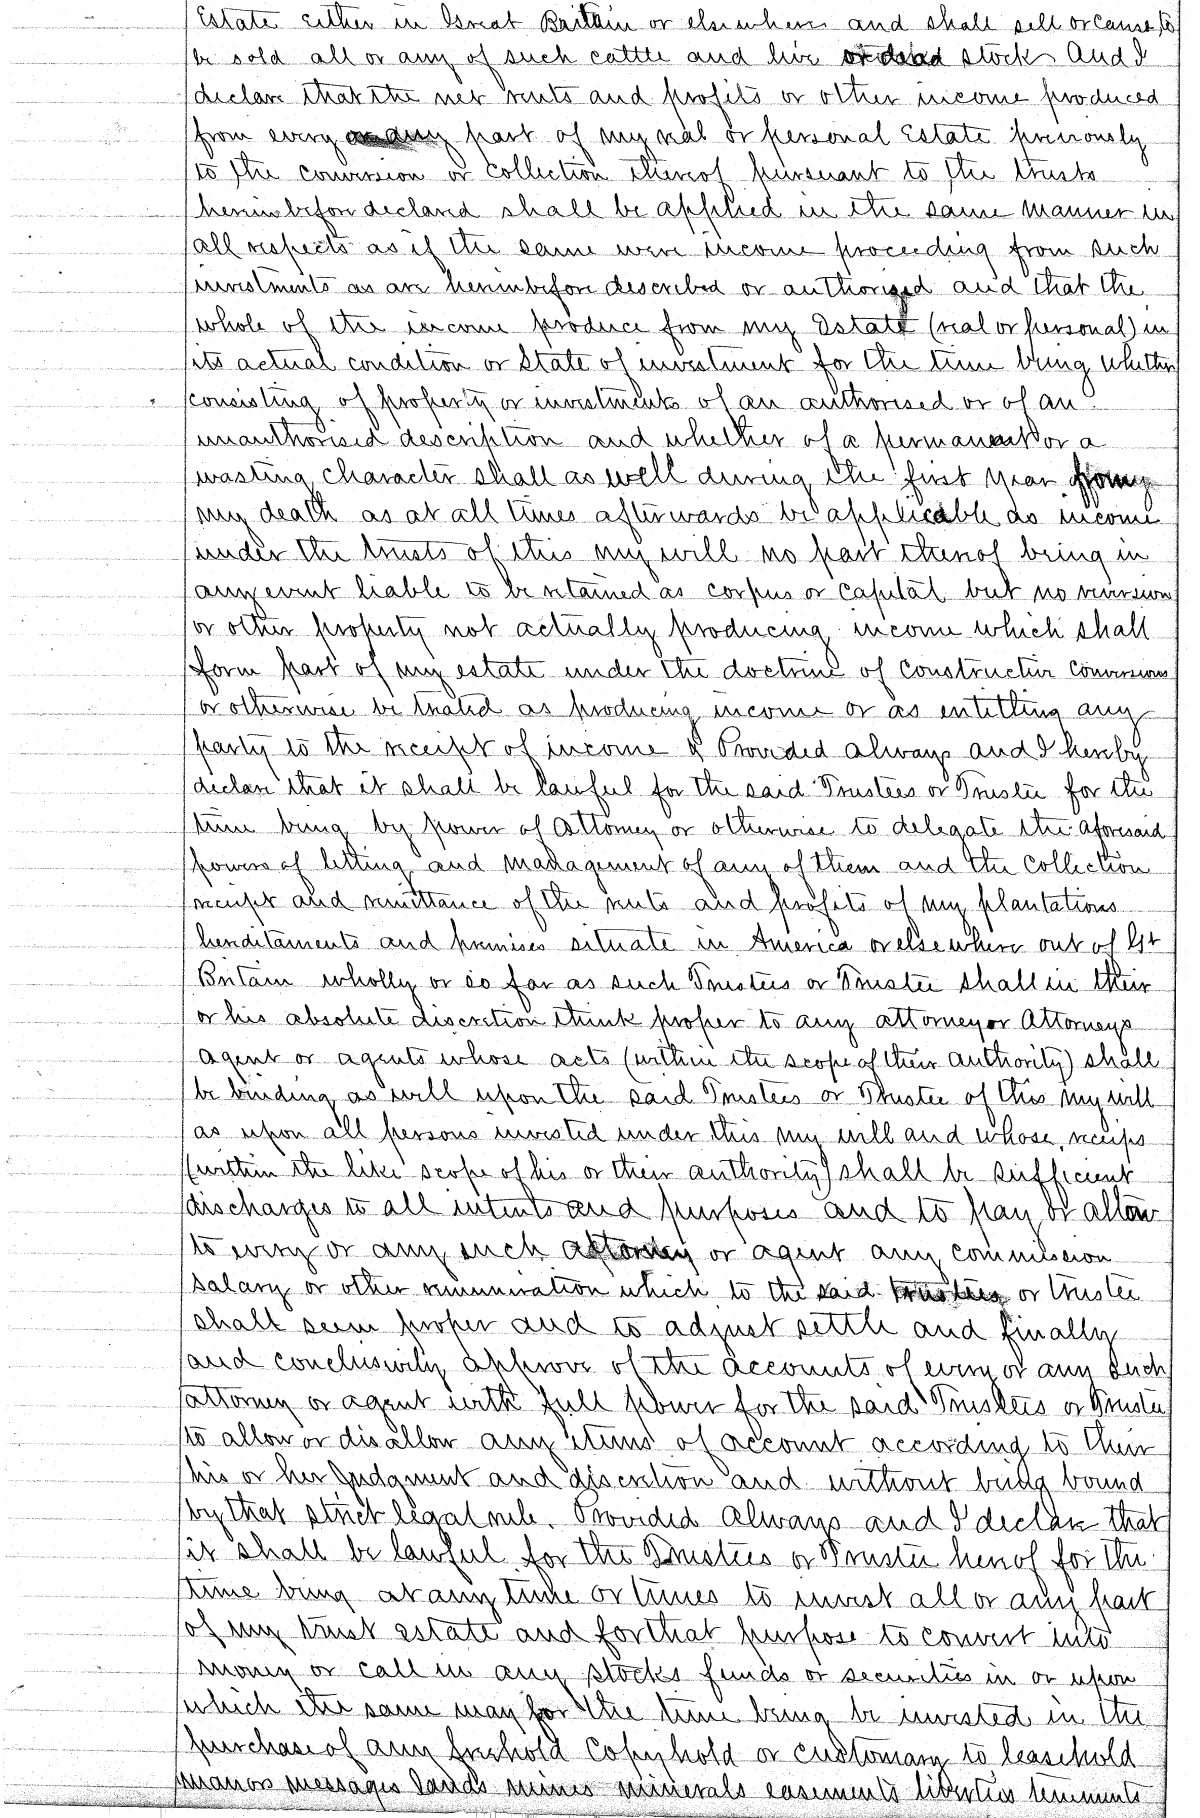 Estate either in Great Britain or elsewhere and shall sell or cause to
be sold all or any of such cattle and live or dead stock And I
declare that the net rents and profits or other income produced
from every or any part of my real or personal Estate previously
to the conversion or collection thereof pursuant to the trusts
hereinbefore declared shall be applied in the same manner in
all respects as if the same were income proceeding from such
investments as are hereinbefore described or authorised and that the
whole of the income produce from my Estate (real or personal) in
its actual condition or State of investment for the time being whether
consisting of property or investments of an authorised or of an
unauthorised description and whether of a permanent or a
wasting character shall as well during the first year from
my death as at all times afterwards be applicable as income
under the trusts of this my will no part thereof being in
any event liable to be retained as corpus or capital but no reversion
or other property not actually producing income which shall
form part of my estate under the doctrine of constructive conversion
or otherwise be treated as producing income or as entitling any
party to the receipt of income & Provided always and I hereby
declare that it shall be lawful for the said Trustees or Trustee for the
time being by power of Attorney or otherwise to delegate the aforesaid
powers of letting and management of any of them and the collection
receipt and remittance of the rents and profits of my plantations
hereditaments and premises situate in America or elsewhere out of Gt
Britain wholly or so far as such Trustees or Trustee shall in their
or his absolute discretion think proper to any attorney or Attorneys
agent or agents whose acts (within the scope of their authority) shall
be binding as well upon the said Trustees or Trustee of this my will
as upon all persons invested under this my will and whose receips
(within the like scope of his or their authority) shall be sufficient
discharges to all intents and purposes and to pay or allow
to every or any such attorney or agent any commission
salary or other remuneration which to the said trustees or trustee
shall seem proper and to adjust settle and finally
and conclusively approve of the accounts of every or any such
attorney or agent with full power for the said Trustees or Trustee
to allow or disallow any items of account according to their
his or her Judgment and discretion and without being bound
by that strict legal rule. Provided always and I declare that
it shall be lawful for the Trustees or Trustee hereof for the
time being at any time or times to invest all or any part
of my trust estate and for that purpose to convert into
money or call in any stocks funds or securities in or upon
which the same may for the time being be invested in the
purchase of any freehold copyhold or customary to leasehold
manors messages lands mines minerals easements liberties tenements